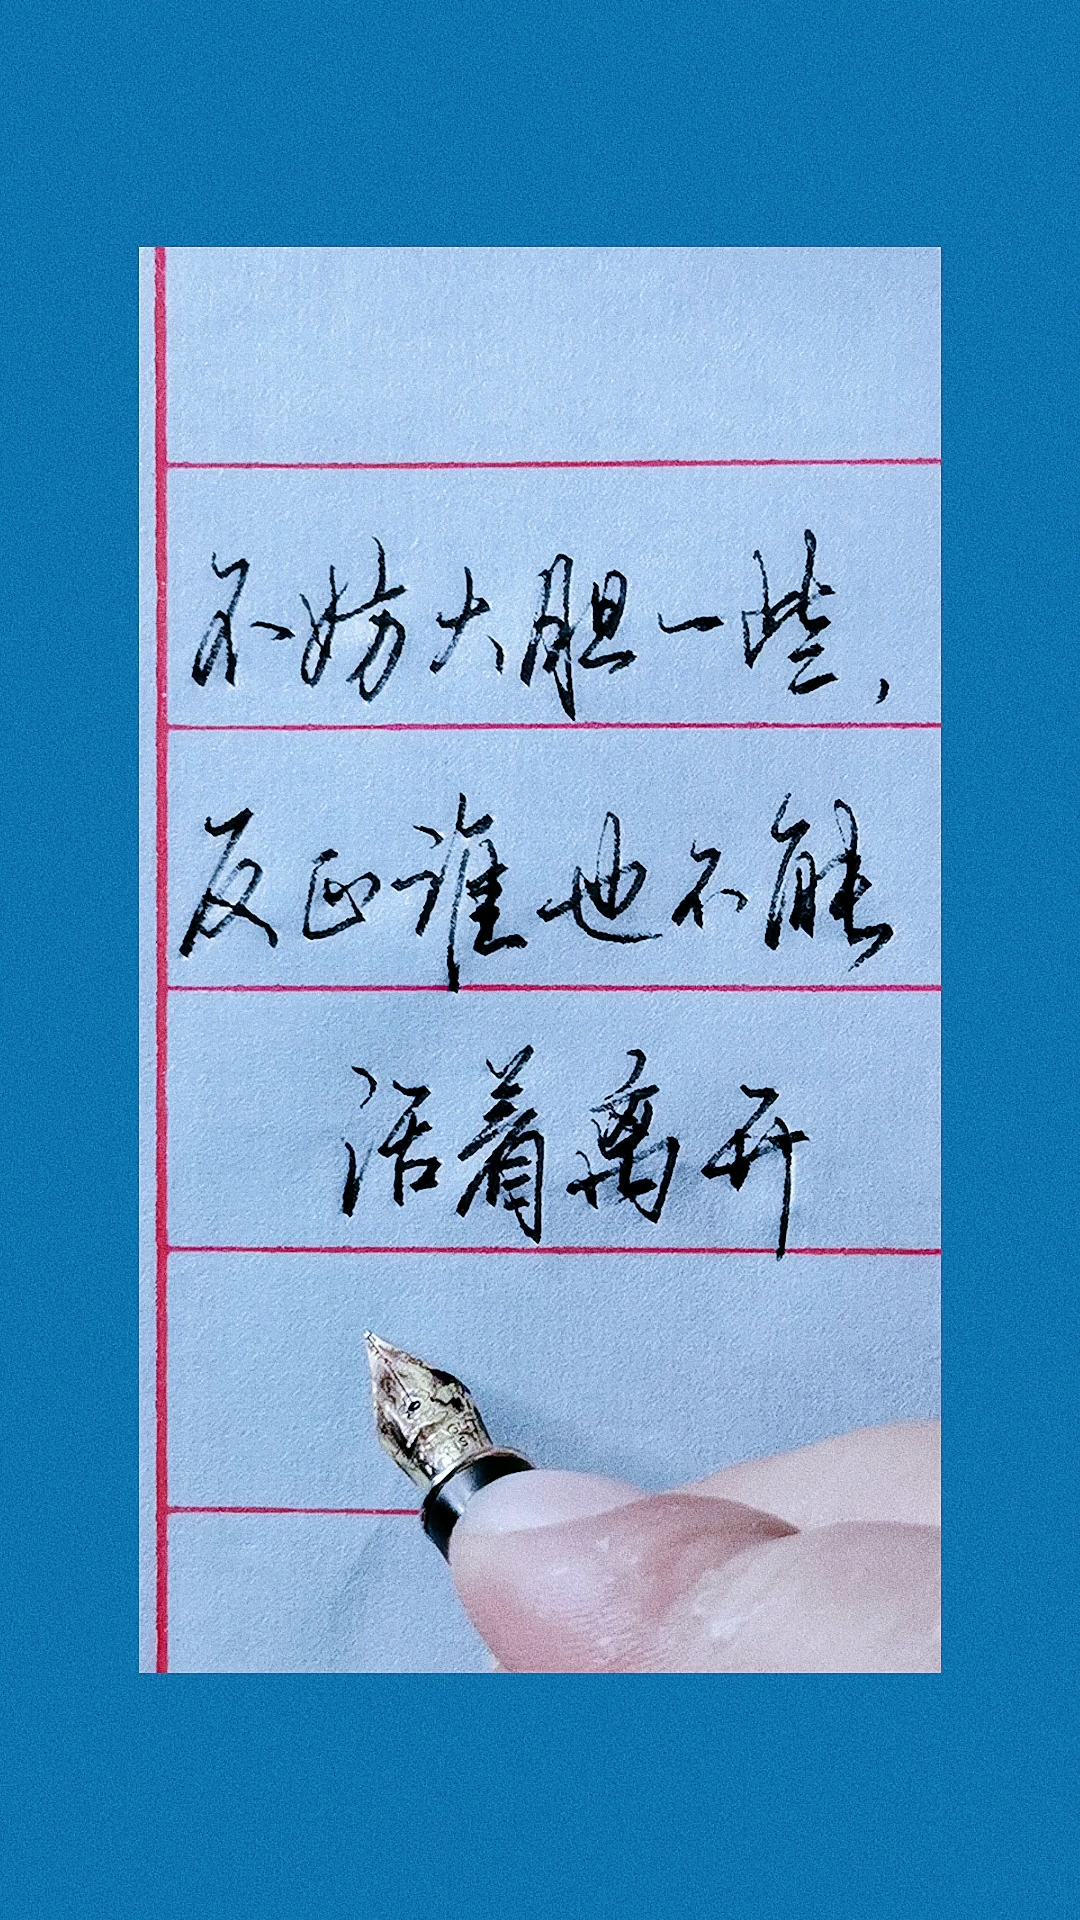 不妨大胆一些，
反正谁也不能
活着离开